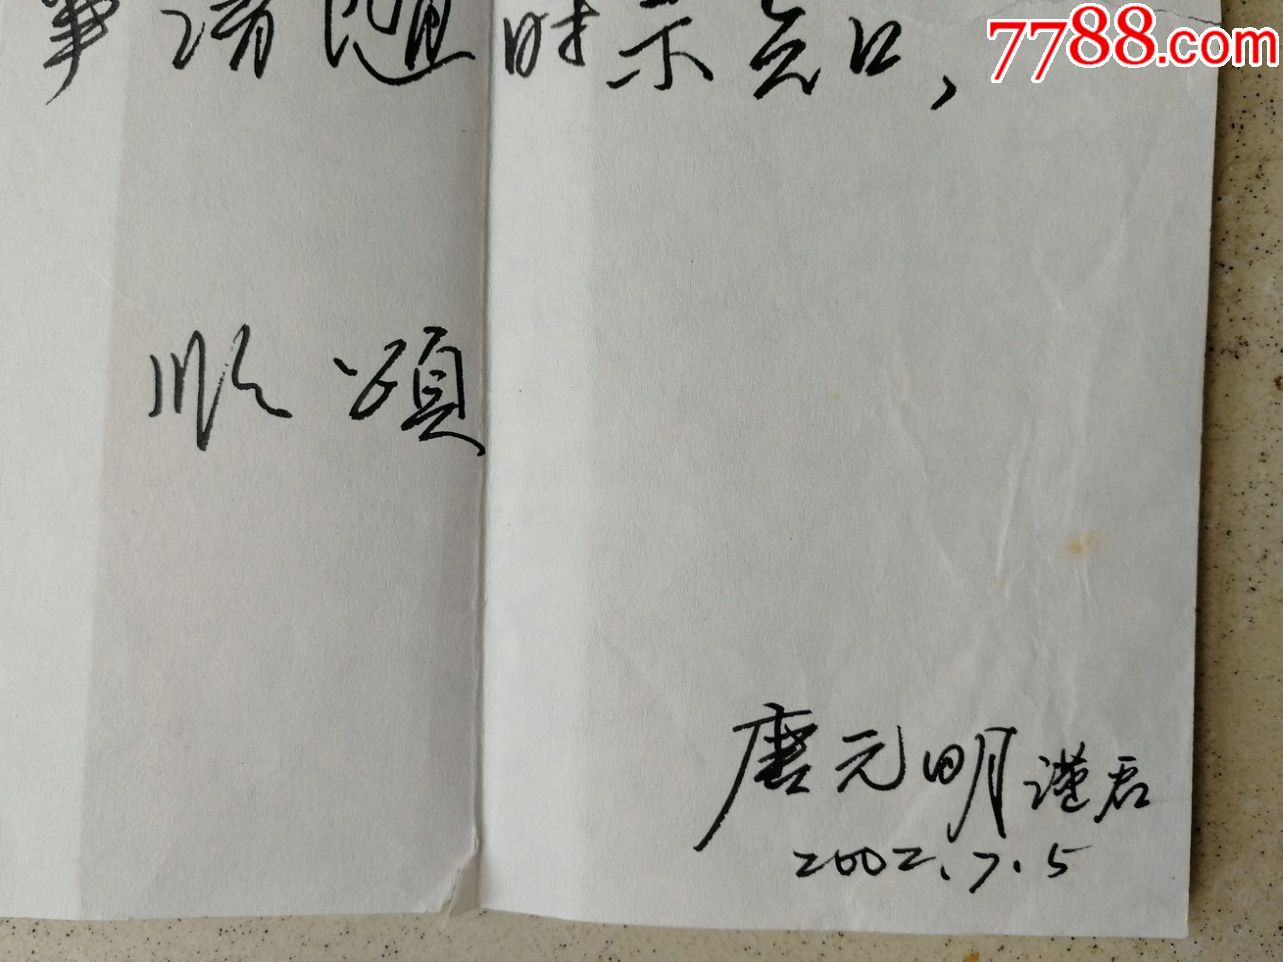 事请随时示知,
7788.com
顺颂
唐元明谨启
2002.7.5